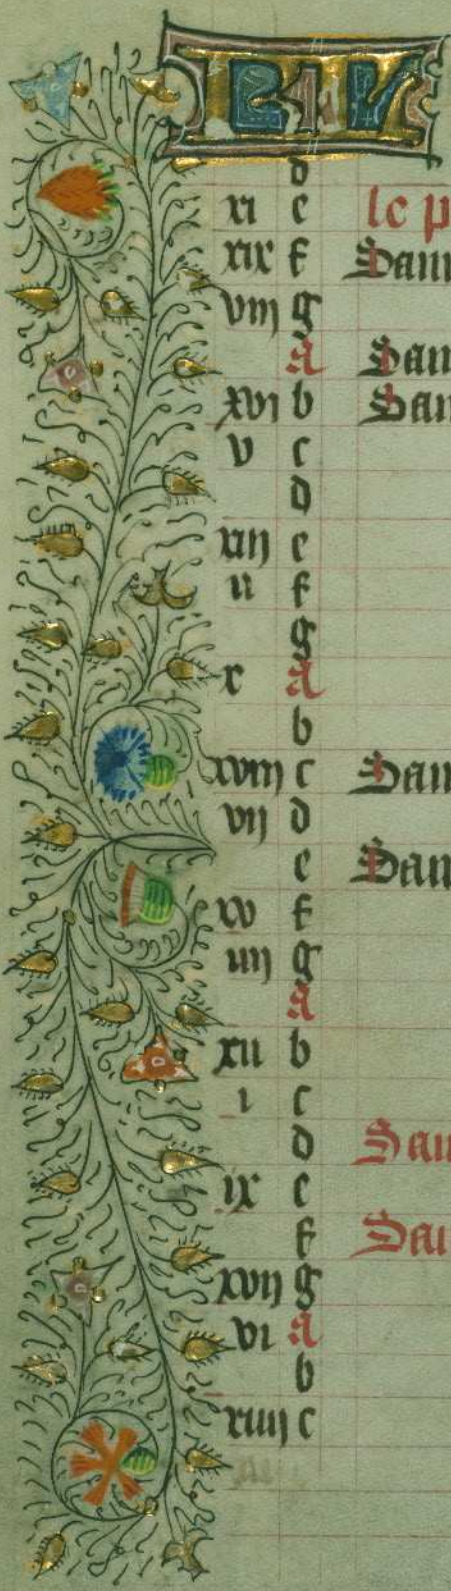 d
xi e le p
xix f Sain
viij g
A Sain
xvi b Sain
v c
d
xiij e
ii f
g
x A
b
xviij c Sain
vij d
e Sain
xv f
iiij g
A
xii b
i c
d Sain
ix e
f Sain
xvij g
vi A
b
xiiij c